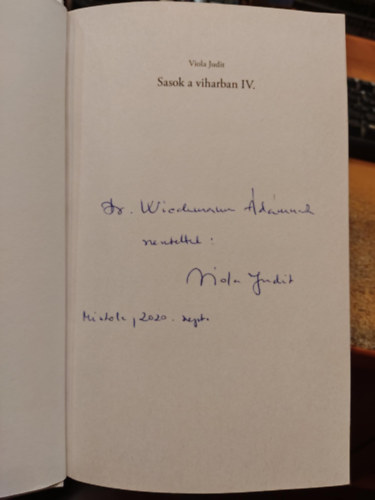 Viola Judit
Sasok a viharban IV.
Dr. Wiedemann Ádámnak
szeretettel:
Viola Judit
Miskolc, 2020. szept.